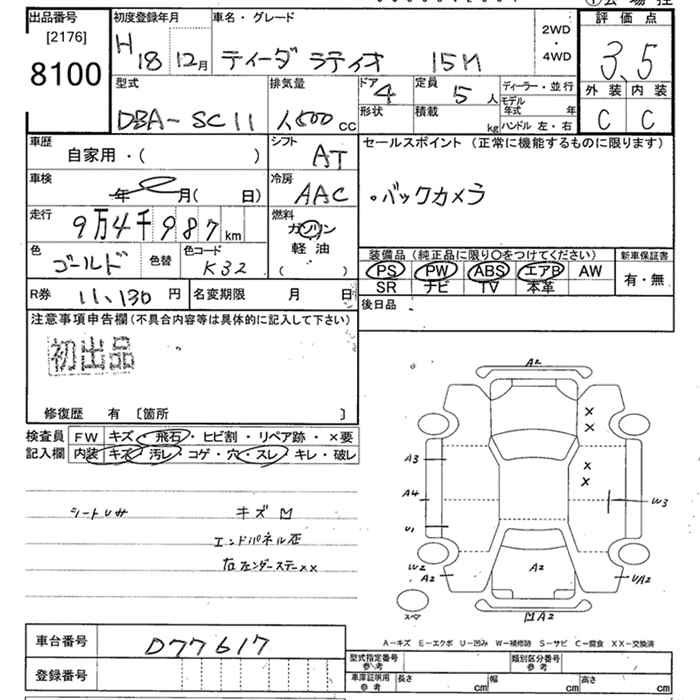 出品番号 初度登録年月 車名・グレード 評価点
[2176] 2WD
8100 H18 12月 ティーダ ラティオ 15M ・ 3.5
4WD
型式 排気量 ドア 4 定員 5人 ディーラー・並行 外装 内装
DBA-SC11 1500cc 形状 積載 kg モデル年式 年 C C
ハンドル 左・右
車歴 シフト セールスポイント (正常に機能するものに限ります)
自家用・( ) AT
車検 冷房 ・バックカメラ
年 月( 日) AAC
走行 燃料
9万4千987km ガソリン
色 色替 色コード 軽油 装備品 (純正品に限り〇をつけてください) 新車保証書
ゴールド K32 ( ) PS PW ABS エアB AW 有・無
R券 11,130円 名変期限 月 日 SR ナビ TV 本革
後日品
注意事項申告欄 (不具合内容等は具体的に記入して下さい)
初出品
修復歴 有 〔箇所 〕
検査員 FW キズ・飛石・ヒビ割・リペア跡・×要
記入欄 内装 キズ・汚レ・コゲ・穴・スレ・キレ・破レ
シートUサ キズM
エンドパネル
A2
×
×
A3 ×
×
A4 W3
U1
W2 A2
A2 U/A2
スペア MA2
A-キズ E-エクボ U-凹み W-補修跡 S-サビ C-腐食 XX-交換済
車台番号 D77617
型式指定番号 参考 類別区分番号 参考
登録番号 車庫証明用 参考 長さ cm 幅 cm 高さ cm